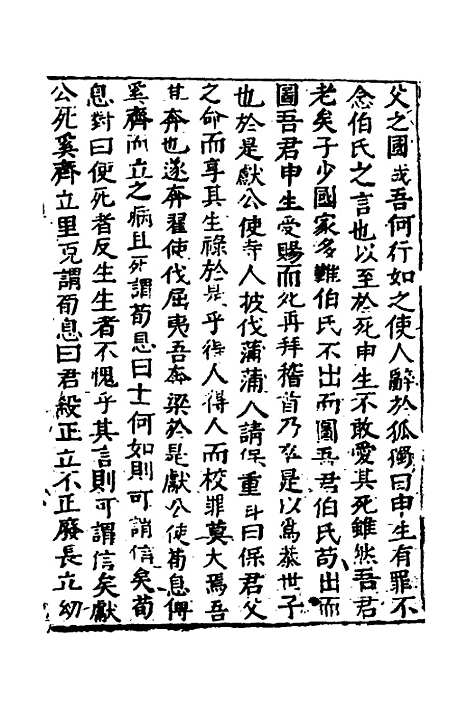 父之國或吾何行如之使人辭於狐獨曰申生有罪不
念伯氏之言也以至於死申生不敢愛其死雖然吾君
老矣子少國家多難伯氏不出而圖吾君伯氏苟出而
圖吾君申生受賜而死再拜稽首乃卒是以為恭世子
也於是獻公使寺人披伐蒲蒲人請保重耳曰保君父
之命而享其生祿於是乎得人得人而校罪莫大焉吾
其奔也遂奔翟使伐屈夷吾奔梁於是獻公使荀息傅
奚齊而立之病且死謂荀息曰士何如則可謂信矣荀
息對曰使死者反生生者不愧乎其言則可謂信矣獻
公死奚齊立里克謂荀息曰君殺正立不正廢長立幼